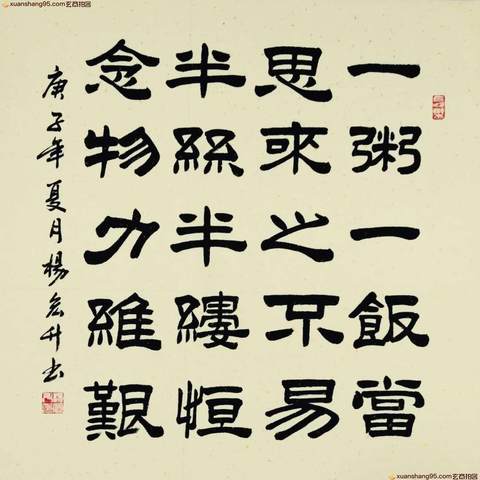 xuanshang95.com
一粥一飯當
思來之不易
半絲半縷恒
念物力維艱
庚子年夏月楊宏升书
xuanshang95.com